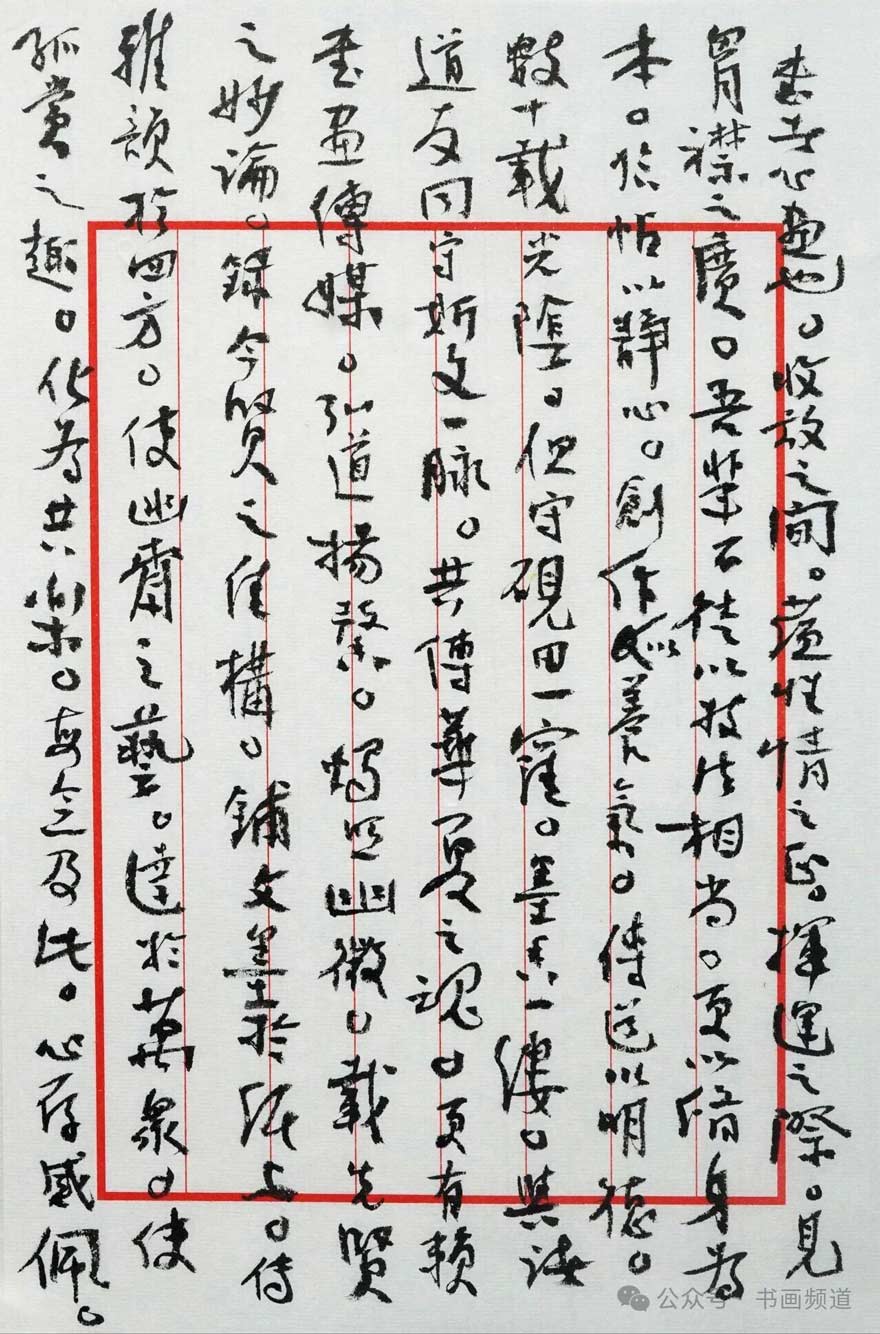 書者心畫也。收放之間。蘊性情之正。揮運之際。見
胸襟之廣。吾輩不徒以技法相尚。更以修身為
本。臨帖以靜心。創作以養氣。傳道以明德。
數十載光陰。但守硯田一窪。墨香一縷。與諸
道友同守斯文一脉。共傳華夏之魂。更有賴
書畫傳媒。弘道揚藝。燭照幽微。載先賢
之妙論。録今賢之佳構。鋪文墨於紙上。傳
雅韻於四方。使幽齋之藝。達於萬衆。使
孤賞之趣。化為共樂。每念及此。心存感佩。
公众号·书画频道